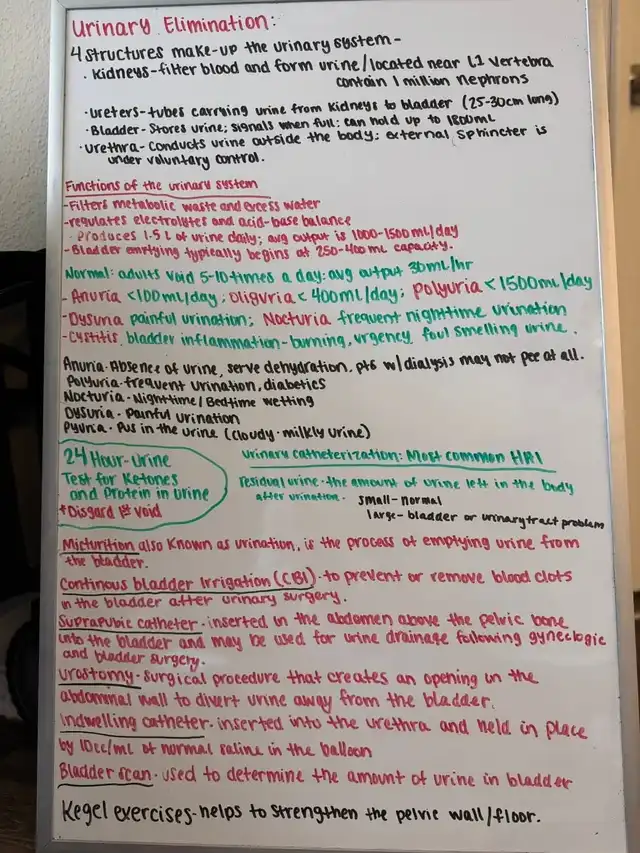 Urinary Elimination:
4 structures make-up the urinary system-
. Kidneys-filter blood and form urine/located near L1 vertebra
contain 1 million nephrons
·ureters-tubes carrying urine from kidneys to bladder (25-30cm long)
·Bladder-Stores urine; signals when full; can hold up to 1800mL
·urethra-conducts urine outside the body; external sphincter is
under voluntary control.
Functions of the urinary system
-Filters metabolic waste and excess water
-regulates electrolytes and acid-base balance
·Produces 1-5 L of urine daily; avg output is 1000-1500 ml/day
-Bladder emptying typically begins at 250-400 mL capacity.
Normal: adults void 5-10 times a day: avg output 30ml/hr
-Anuria <100ml/day; oliguria < 400ml/day; polyuria < 1500ml/day
-Dysuria painful urination; Nocturia frequent nighttime urination
-Cystitis, bladder inflammation-burning, urgency, foul smelling urine.
Anuria-Absence of urine, serve dehydration, pts w/dialysis may not pee at all.
Polyuria-frequent urination, diabetics
Nocturia-Nighttime/Bedtime wetting
Dysuria-Painful urination
Pyuria-Pus in the urine (cloudy-milkly urine)
24 Hour-urine
Test for Ketones
and Protein in urine
*Disgard 1st void
Urinary catheterization: Most common HAI
residual urine-the amount of urine left in the body
after urination. small-normal
large-bladder or urinary tract problem
Micturition also known as urination, is the process of emptying urine from
the bladder.
Continous bladder irrigation (CBI)-to prevent or remove blood clots
in the bladder after urinary surgery.
Suprapubic catheter-inserted in the abdomen above the pelvic bone
into the bladder and may be used for urine drainage following gyneclogic
and bladder surgery.
Urostomy-surgical procedure that creates an opening in the
abdominal wall to divert urine away from the bladder.
Indwelling catheter-inserted into the urethra and held in place
by 10cc/mL of normal saline in the balloon
Bladder scan-used to determine the amount of urine in bladder
Kegel exercises-helps to strengthen the pelvic wall/floor.